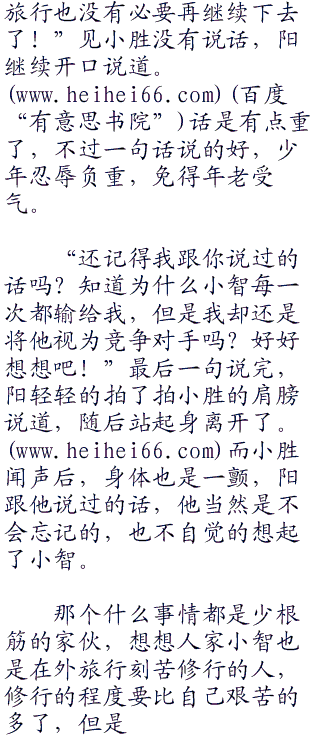 旅行也没有必要再继续下去
了！”见小胜没有说话，阳
继续开口说道。
(www.heihei66.com)(百度
“有意思书院”)话是有点重
了，不过一句话说的好，少
年忍辱负重，免得年老受
气。
“还记得我跟你说过的
话吗？知道为什么小智每一
次都输给我，但是我却还是
将他视为竞争对手吗？好好
想想吧！”最后一句说完，
阳轻轻的拍了拍小胜的肩膀
说道，随后站起身离开了。
(www.heihei66.com)而小胜
闻声后，身体也是一颤，阳
跟他说过的话，他当然是不
会忘记的，也不自觉的想起
了小智。
那个什么事情都是少根
筋的家伙，想想人家小智也
是在外旅行刻苦修行的人，
修行的程度要比自己艰苦的
多了，但是